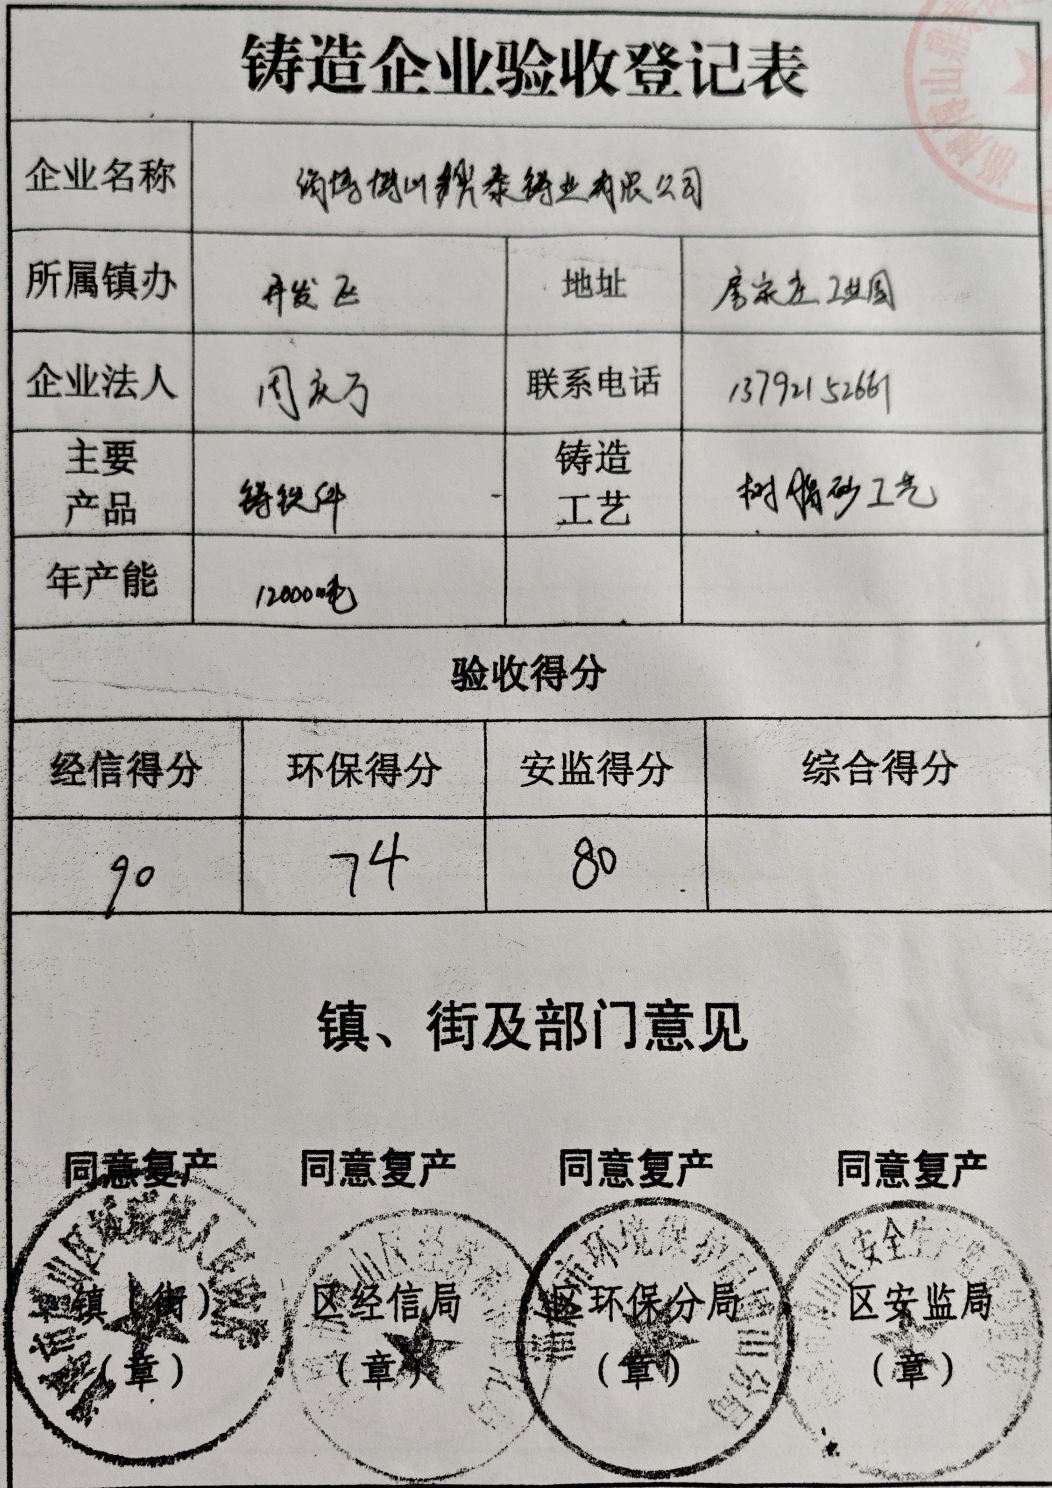 铸造企业验收登记表
企业名称 淄博博山 泰铸业有限公司
所属镇办 开发区 地址 房家庄工业园
企业法人 周庆万 联系电话 13792152661
主要产品 铸铁件 铸造工艺 树脂砂工艺
年产能 12000吨
验收得分
经信得分 环保得分 安监得分 综合得分
90 74 80
镇、街及部门意见
同意复产 同意复产 同意复产 同意复产
镇（街） 区经信局 区环保分局 区安监局
（章） （章） （章） （章）